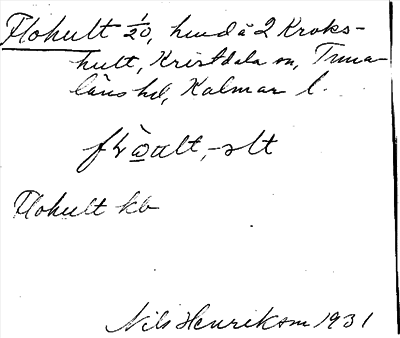 Flohult 1/20, hmd å 2 Kroks-
hult, Kristdala sn, Tuna-
läns hd, Kalmar l.
-slt
Flohult kb
Nils Henrikson 1931